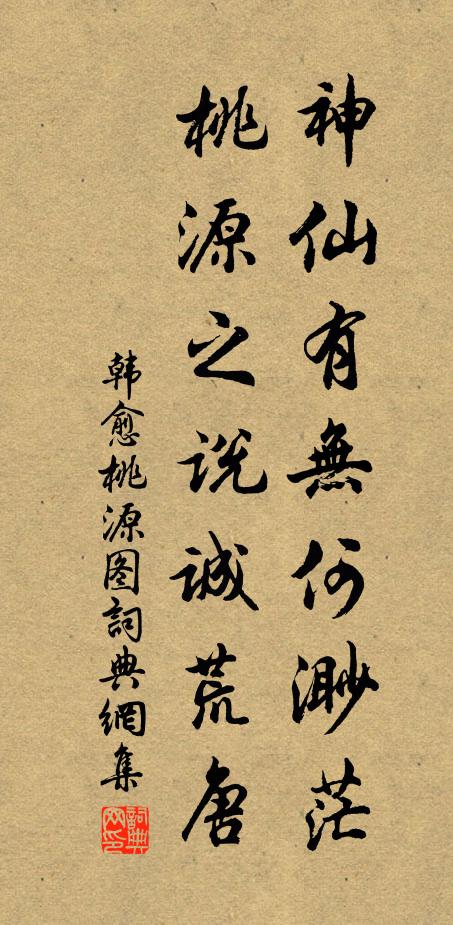 神仙有無何渺茫
桃源之说诚荒唐
韩愈桃源图词典網集
詞典网印